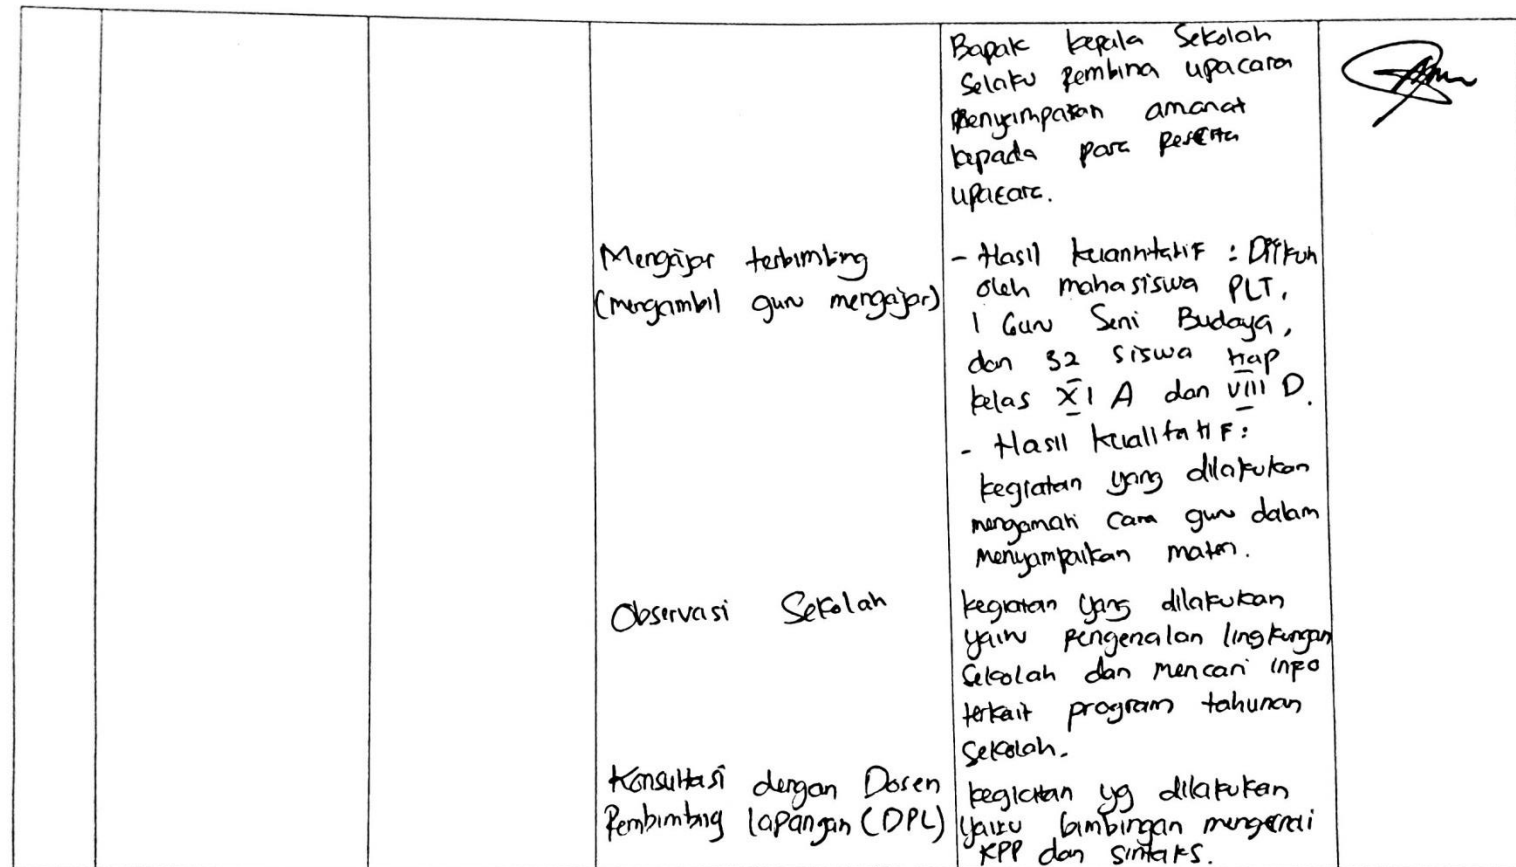 Bapak kepala Sekolah
Selaku pembina upacara
Menyimpakan amanat
kepada para peserta
upacara.
Mengajar terbimbing
(mengambil guru mengajar)
- Hasil kuantitatif : Diikuti
oleh mahasiswa PLT,
1 Guru Seni Budaya,
dan 32 siswa tiap
kelas XI A dan VIII D.
- Hasil kualitatif :
kegiatan yang dilakukan
mengamati cara guru dalam
menyampaikan materi.
Observasi Sekolah
kegiatan yang dilakukan
yaitu pengenalan lingkungan
Sekolah dan mencari info
terkait program tahunan
Sekolah.
Konsultasi dengan Dosen
Pembimbing lapangan (DPL)
kegiatan yg dilakukan
yaitu bimbingan mengenai
KPP dan sintaks.